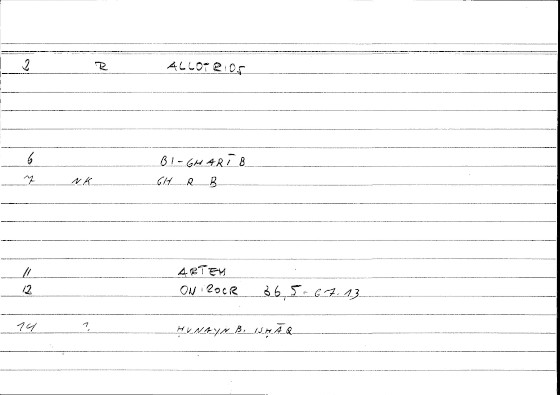 2 R ALLOTRIOS
6 BI-GHARĪB
7 NK GH R B
11 ARTEM
12 ON:20CR 36,5-67.13
14 ? ḤUNAYN B. ISḤĀQ